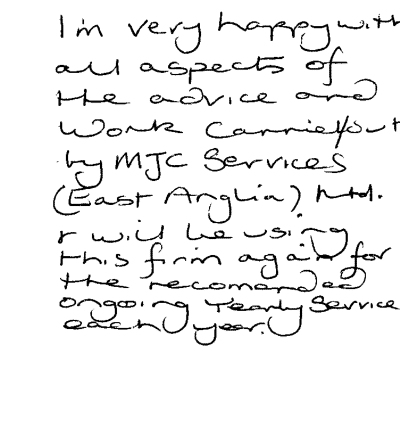 I'm very happy with
all aspects of
the advice and
Work Carried/out
by MJC Services
(East Anglia) Ltd.
I will be using
this firm again for
the recomended
ongoing Yearly Service
each year.